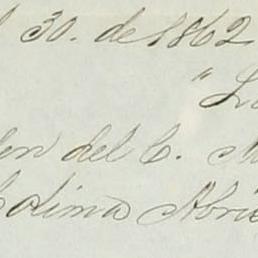 l 30. de 1862
"L
den del C. M
Colima Abri